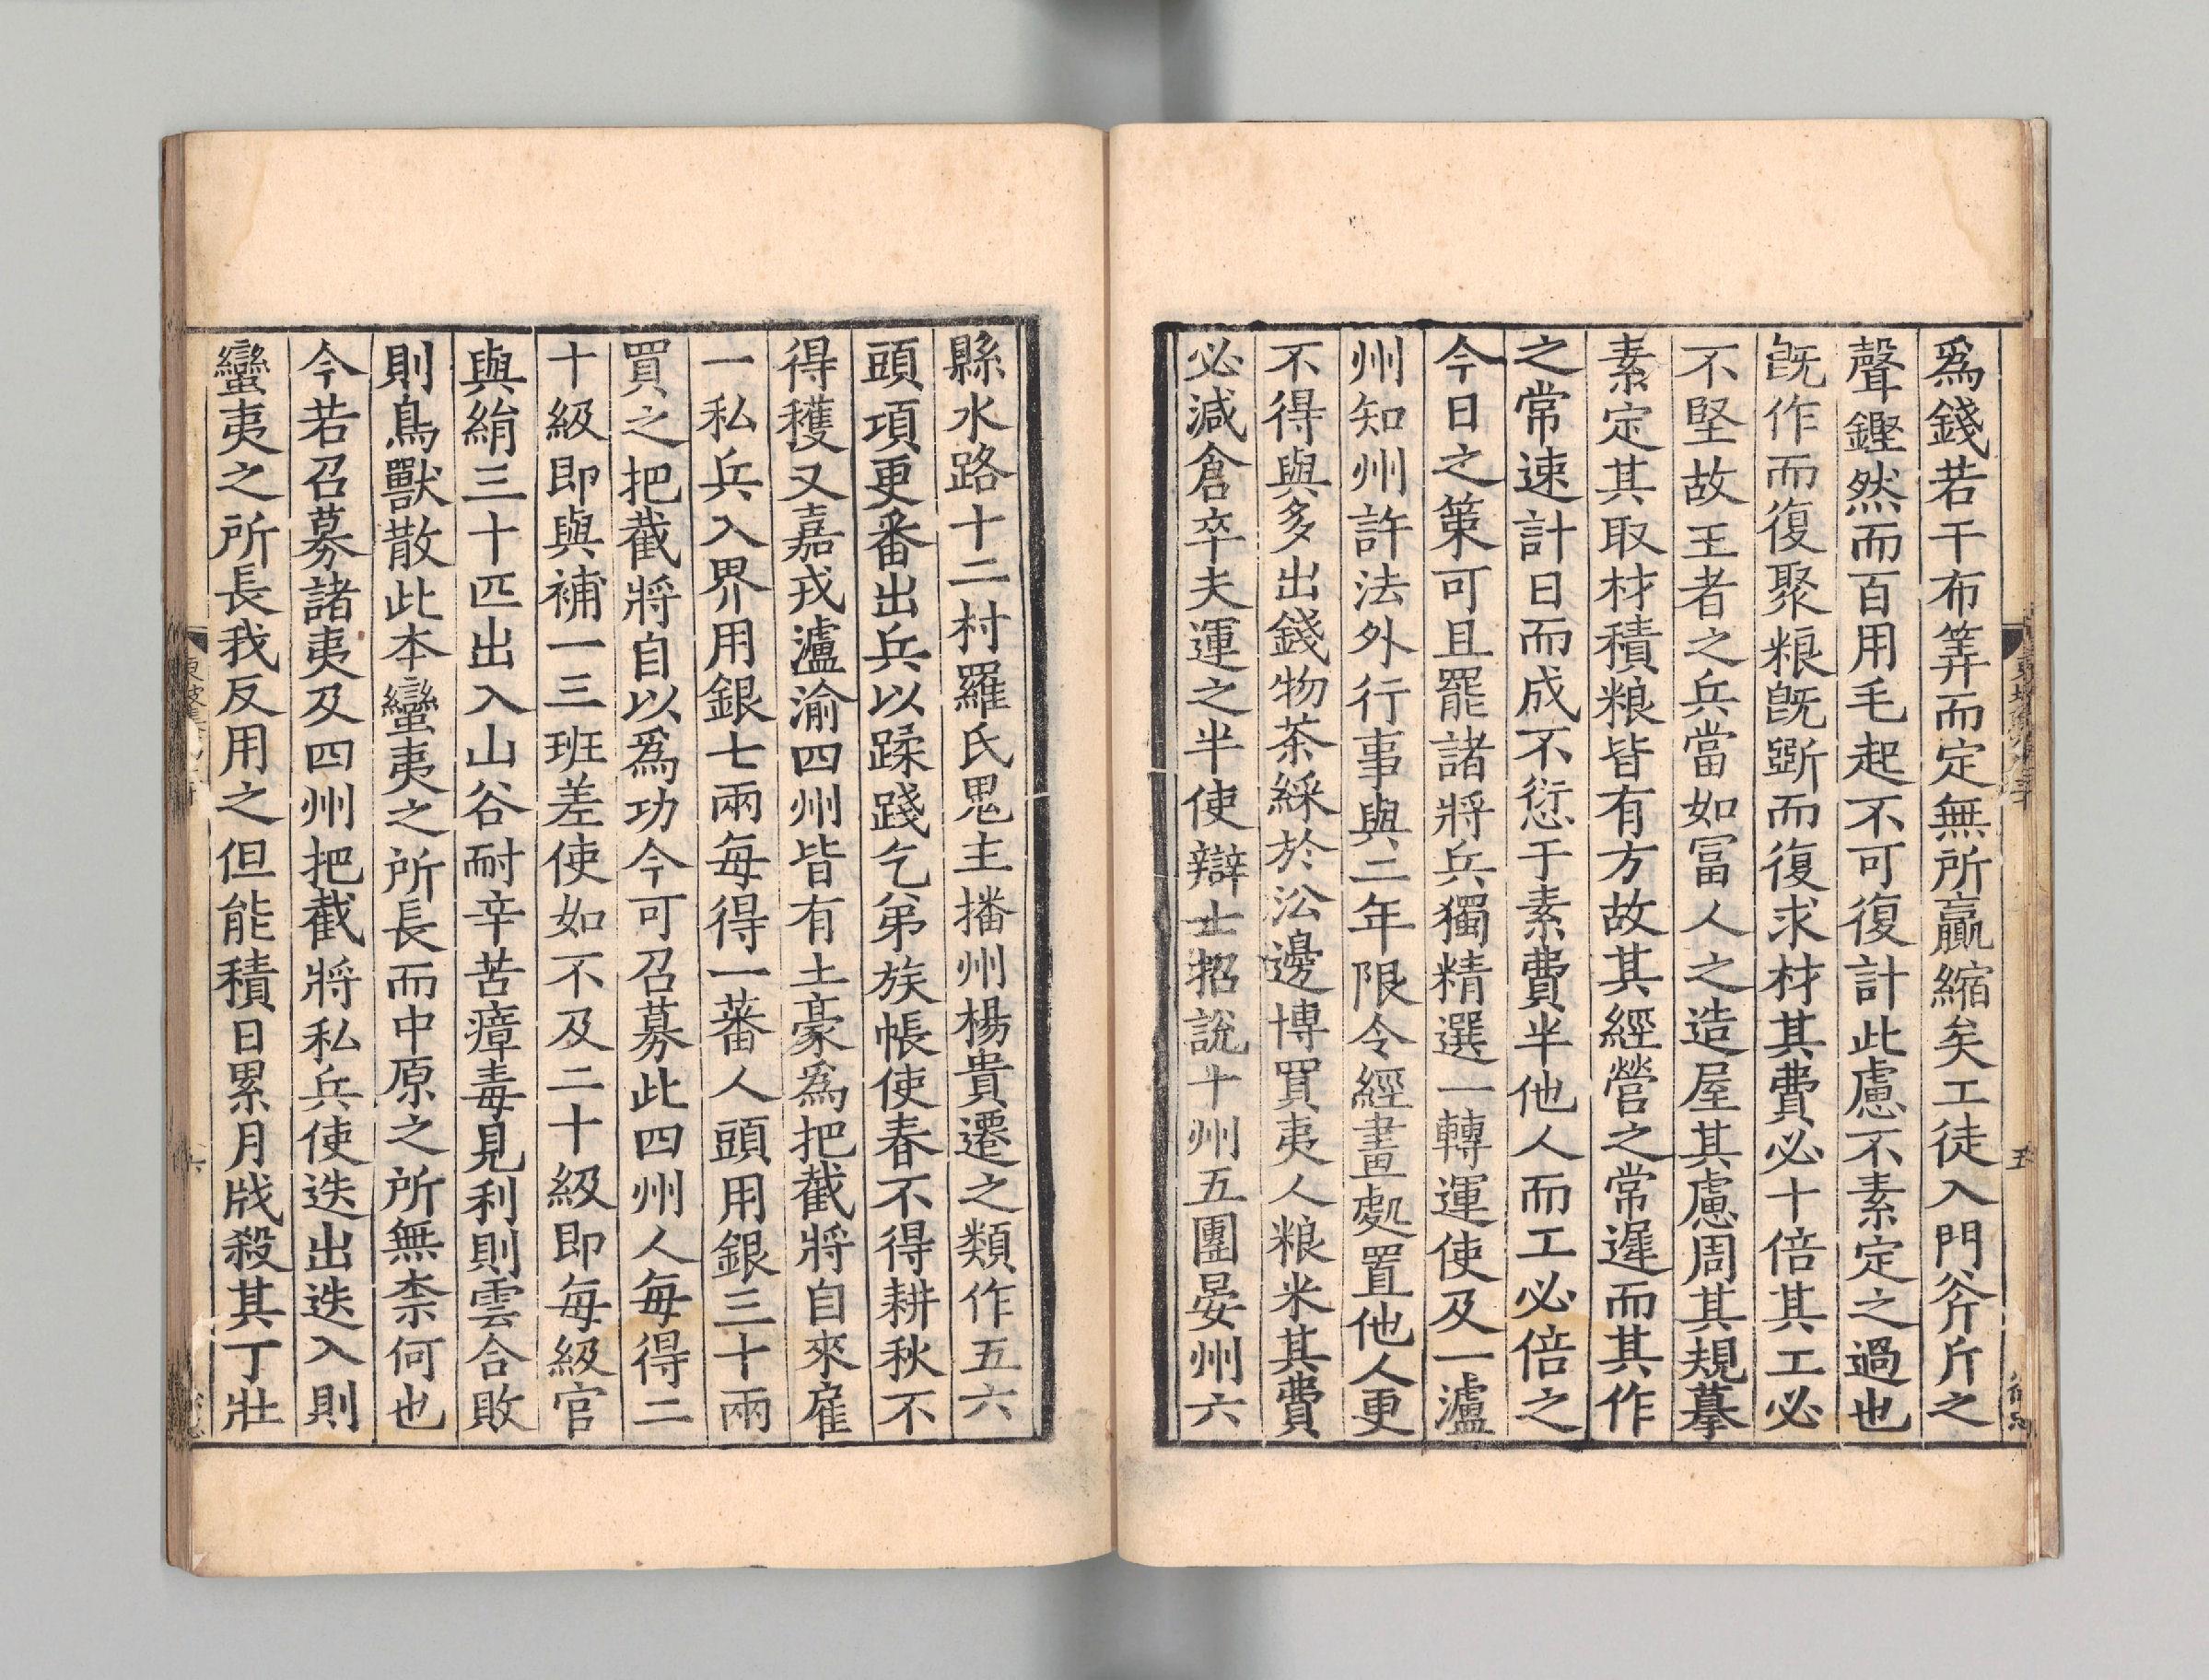 爲錢若干布筭而定無所贏縮矣工徒入門斧斤之
聲鏗然而百用毛起不可復計此慮不素定之過也
旣作而復聚粮旣斵而復求材其費必十倍其工必
不堅故王者之兵當如冨人之造屋其慮周其規摹
素定其取材積粮皆有方故其經營之常遲而其作
之常速計日而成不愆于素費半他人而工必倍之
今日之策可且罷諸將兵獨精選一轉運使及一瀘
州知州許法外行事與二年限令經畫處置他人更
不得與多出錢物茶綵於沿邊博買夷人粮米其費
必減倉卒夫運之半使辯士招說十州五團晏州六
縣水路十二村羅氏鬼主播州楊貴遷之類作五六
頭項更番出兵以蹂踐乞弟族帳使春不得耕秋不
得穫又嘉戎瀘渝四州皆有土豪爲把截將自來雇
一私兵入界用銀七兩每得一蕃人頭用銀三十兩
買之把截將自以爲功今可召募此四州人每得二
十級即與補一三班差使如不及二十級即每級官
與絹三十匹出入山谷耐辛苦瘴毒見利則雲合敗
則鳥獸散此本蠻夷之所長而中原之所無柰何也
今若召募諸夷及四州把截將私兵使迭出迭入則
蠻夷之所長我反用之但能積日累月戕殺其丁壯